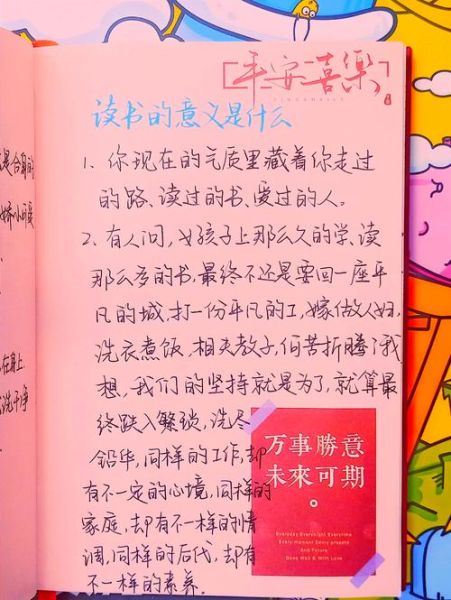 平安喜樂
读书的意义是什么
1. 你现在的气质里藏着你走过
的路、读过的书、爱过的人。
2. 有人问，女孩子上那么久的学、读
那么多的书，最终不还是要回一座平
凡的城，打一份平凡的工，嫁做人妇，
洗衣煮饭，相夫教子，何苦折腾？我
想，我们的坚持就是为了，就算最
终跌入繁琐，洗尽
铅华，同样的工作，却
有不一定的心境，同样的
家庭，却有不一样的情
调，同样的后代，却有
不一样的素养．
万事勝意
未來可期
。
Everyday Everynight Everytime
Every moment Deiny presete
And Future
Done Well & With Love
是合群的
娇小可爱
在身上
洗干净